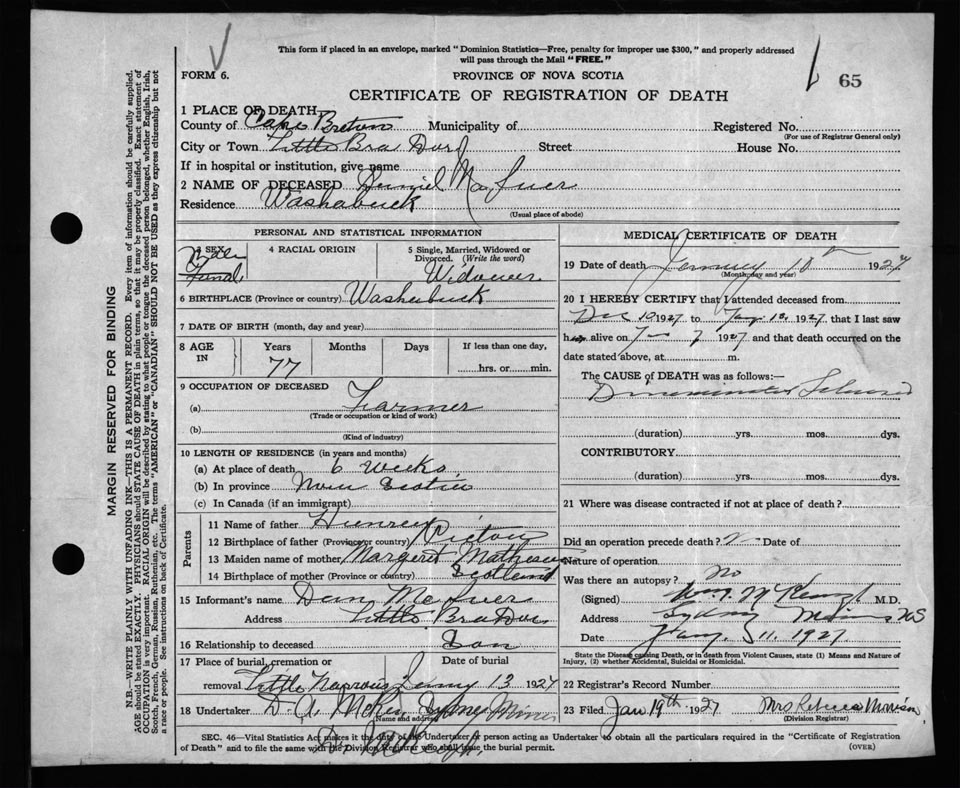 This form if placed in an envelope, marked "Dominion Statistics—Free, penalty for improper use $300," and properly addressed
will pass through the Mail "FREE."
FORM 6.
PROVINCE OF NOVA SCOTIA
65
CERTIFICATE OF REGISTRATION OF DEATH
1 PLACE OF DEATH
County of Cape Breton Municipality of Registered No.
(For use of Registrar General only)
City or Town Little Bra Dor Street House No.
If in hospital or institution, give name
2 NAME OF DECEASED
Residence Washabuck
(Usual place of abode)
PERSONAL AND STATISTICAL INFORMATION
3 SEX Male
4 RACIAL ORIGIN
5 Single, Married, Widowed or
Divorced. (Write the word)
Widower
6 BIRTHPLACE (Province or country) Washabuck
7 DATE OF BIRTH (month, day and year)
8 AGE IN Years Months Days If less than one day,
77 hrs. or min.
9 OCCUPATION OF DECEASED
(a) Farmer
(Trade or occupation or kind of work)
(b)
(Kind of industry)
10 LENGTH OF RESIDENCE (in years and months)
(a) At place of death 6 Weeks
(b) In province Nova Scotia
(c) In Canada (if an immigrant)
Parents
11 Name of father
12 Birthplace of father (Province or country) Pictou
13 Maiden name of mother Margaret Matheson
14 Birthplace of mother (Province or country) Scotland
15 Informant's name Dan
Address Little Bra Dor
16 Relationship to deceased Son
17 Place of burial, cremation or Date of burial
removal Little Narrows 13 1927
18 Undertaker D. A. Sydney Mines
(Name and address)
MEDICAL CERTIFICATE OF DEATH
19 Date of death January 10 1927
(Month, day and year)
20 I HEREBY CERTIFY that I attended deceased from
Dec 10 1927 to Jany 1927, that I last saw
h alive on Jan 7 1927 and that death occurred on the
date stated above, at m.
The CAUSE OF DEATH was as follows:—
(duration) yrs. mos. dys.
CONTRIBUTORY
(duration) yrs. mos. dys.
21 Where was disease contracted if not at place of death?
Did an operation precede death? Date of
Nature of operation
Was there an autopsy? No
(Signed) M.D.
Address Sydney Mines NS
Date Jany. 11. 1927
State the Disease causing Death, or in death from Violent Causes, state (1) Means and Nature of
Injury, (2) whether Accidental, Suicidal or Homicidal.
22 Registrar's Record Number
23 Filed Jan 19th 1927 Mrs Rebecca Morrison
(Division Registrar)
SEC. 46—Vital Statistics Act makes it the duty of the Undertaker or person acting as Undertaker to obtain all the particulars required in the "Certificate of Registration
of Death" and to file the same with the Division Registrar who shall issue the burial permit. (OVER)
MARGIN RESERVED FOR BINDING
N.B.—WRITE PLAINLY WITH UNFADING INK—THIS IS A PERMANENT RECORD. Every item of information should be carefully supplied.
AGE should be stated EXACTLY. PHYSICIANS should STATE CAUSE OF DEATH in plain terms, so that it may be properly classified. Exact statement of
OCCUPATION is very important. RACIAL ORIGIN will be described by stating to what people or tongue the deceased person belonged, whether English, Irish,
Scotch, French, German, Russian, Ruthenian, etc. The terms "AMERICAN" or "CANADIAN" SHOULD NOT BE USED as they express citizenship but not
a race or people. See instructions on back of Certificate.